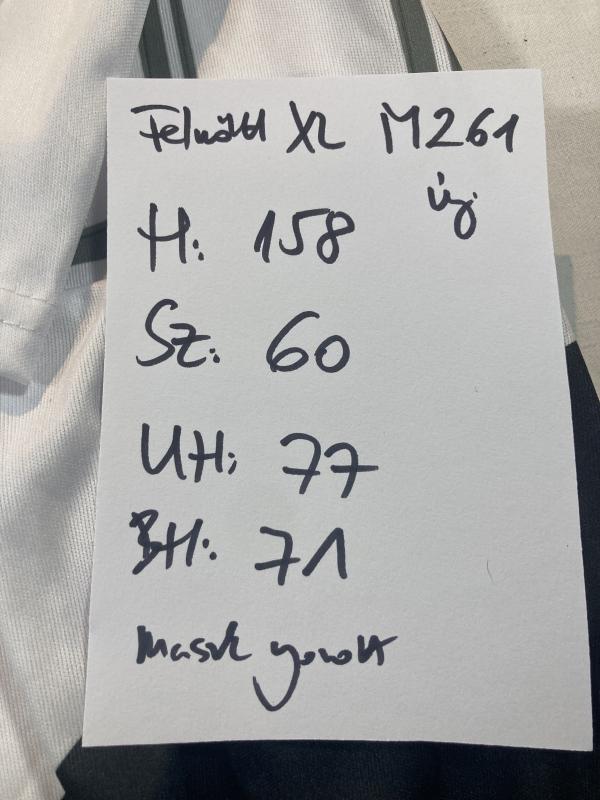 Felnőtt XL M261
új
H: 158
Sz: 60
UH: 77
BH: 71